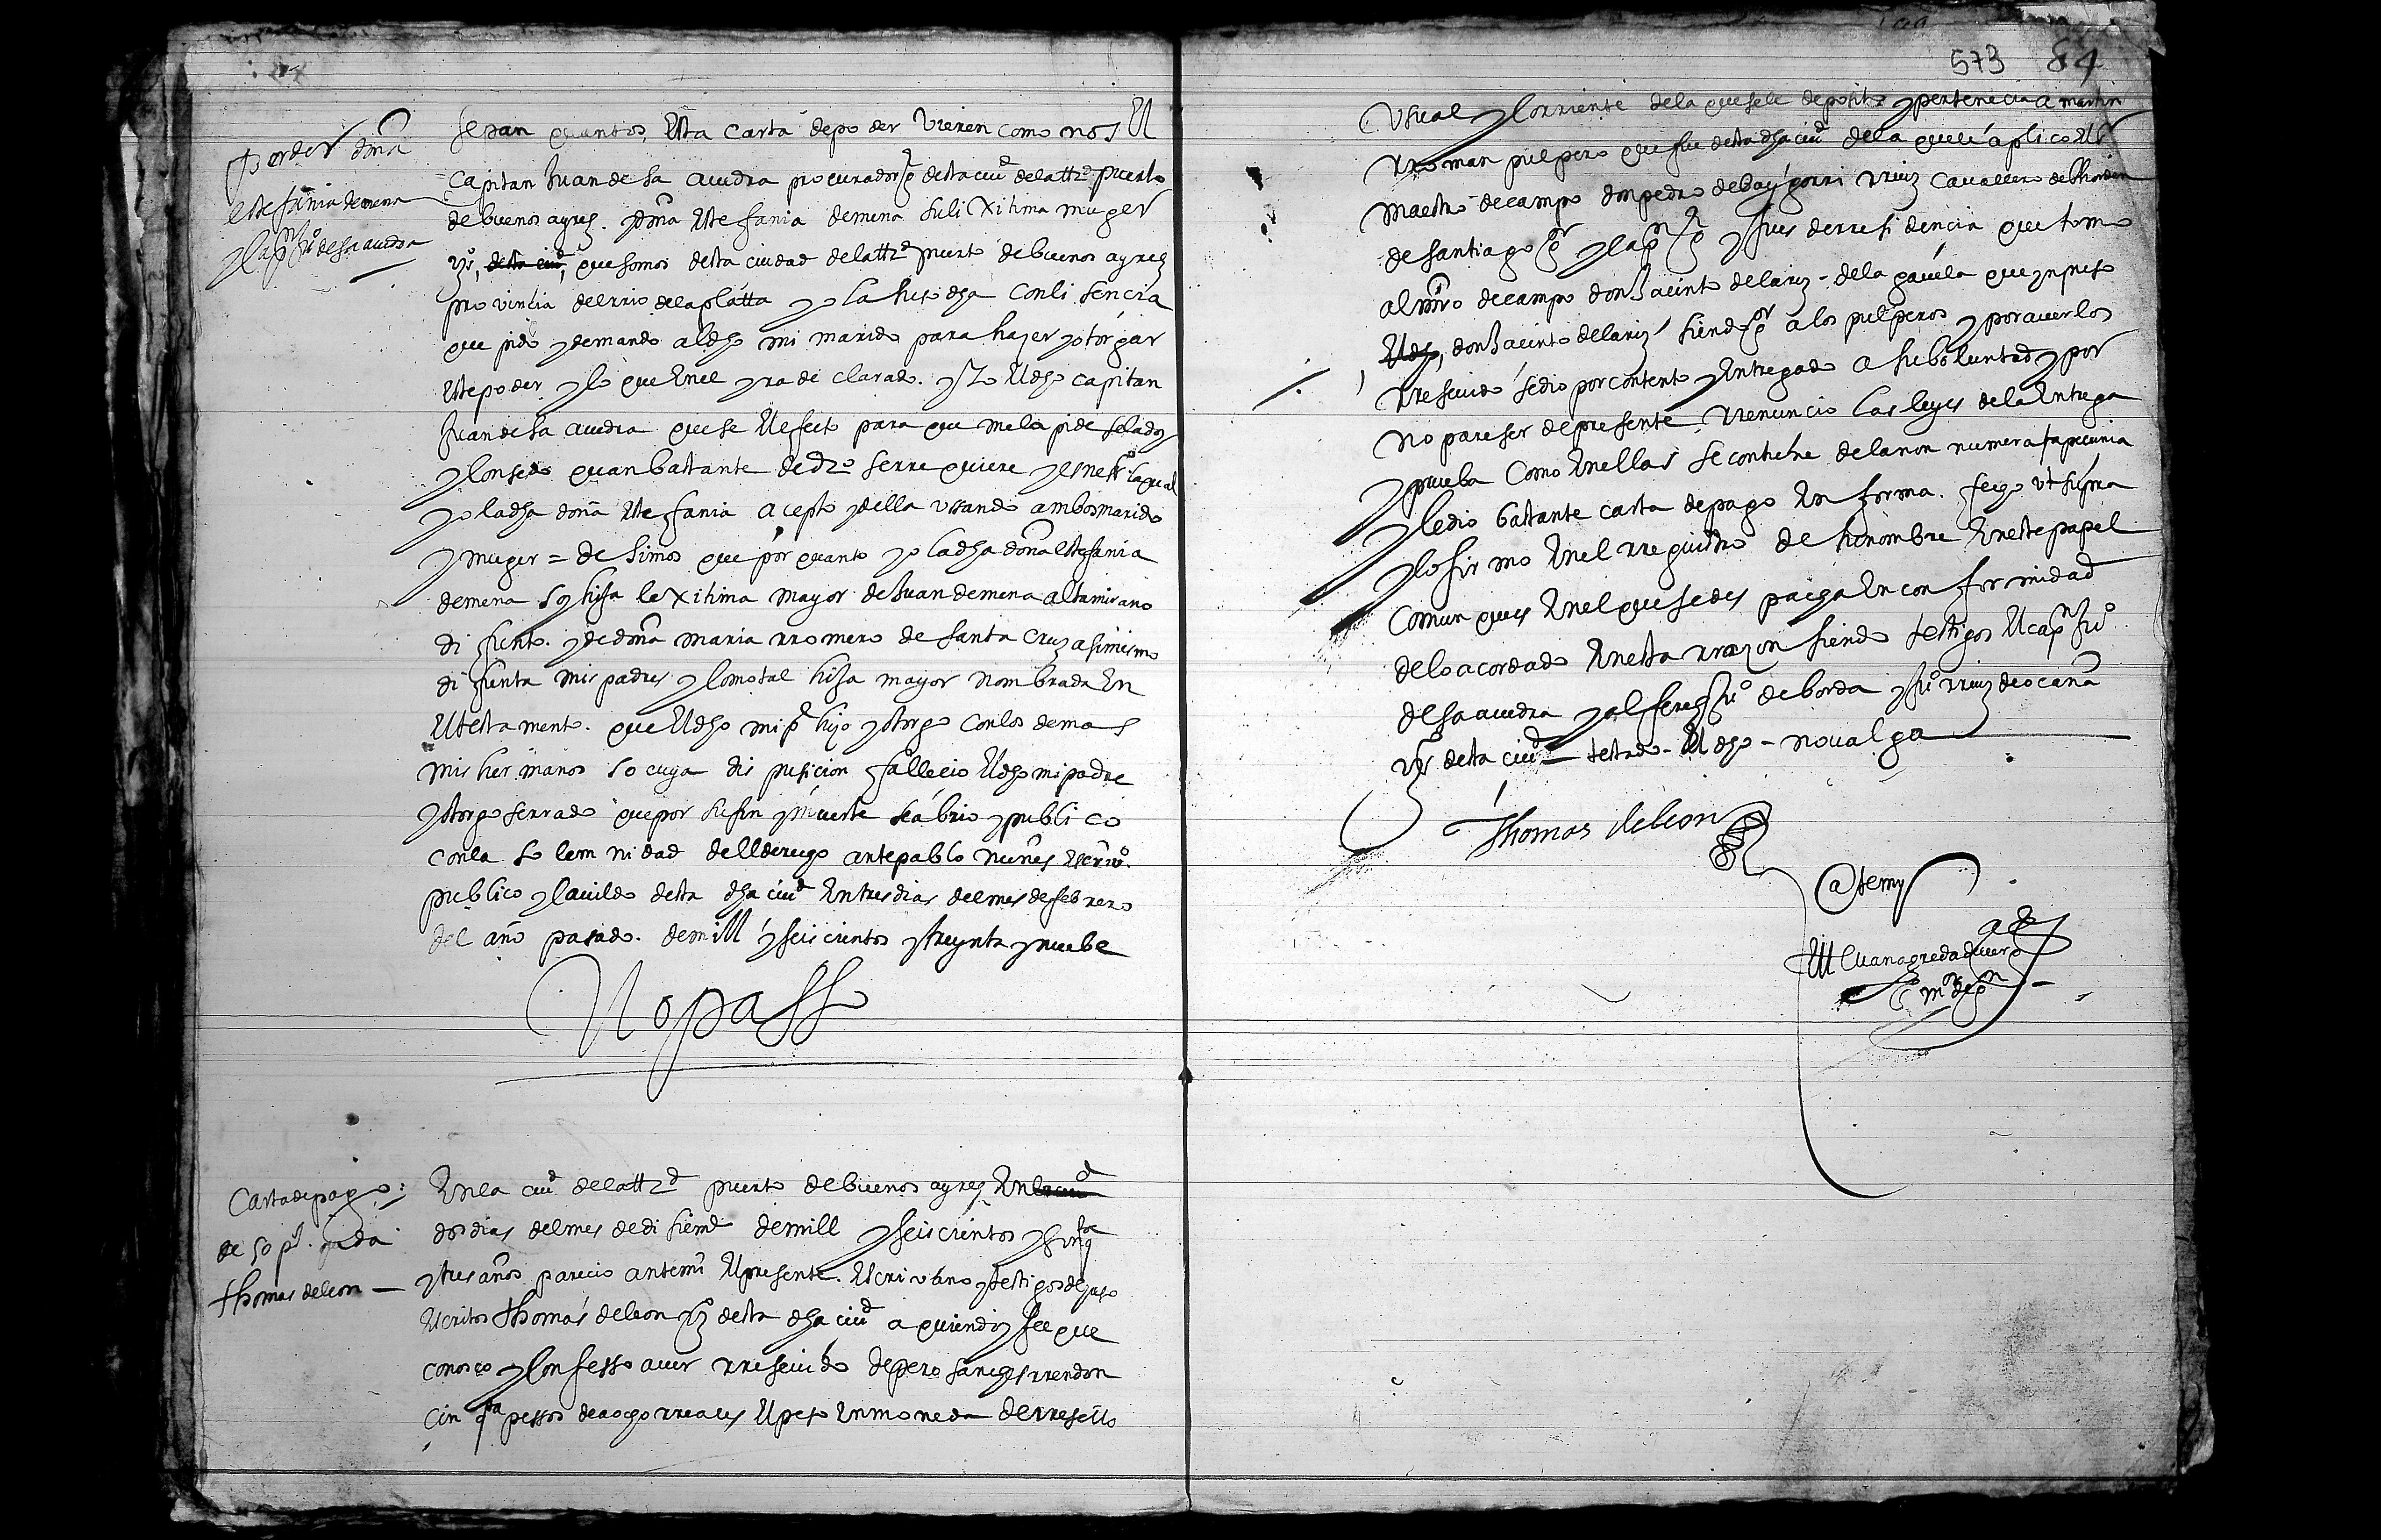 Poder doña
estefania de mena
y capn Juº de saauedra
Sepan quantos Esta carta de poder vieren como nos El
capitan Juan de sa auedra procurador g desta ciud de la ttrd puerto
de buenos ayres. y doña estefania de mena su lixitima muger
vzs, desta ciud, que somos desta ciudad de la ttrd puerto de buenos ayres
provincia del rrio de la platta yo la susodha con lisencia
que pido y demando al dho mi marido para hazer y otorgar
este poder y lo que en el yra declarado. y yo El dho capitan
Juan de sa auedra que se El efecto para que me la pide se la doy
y consedo quan bastante de drº se rrequiere y es nessº la qual
yo la dha doña estefania acepto y della vssando ambos marido
y muger = desimos que por quanto yo la dha doña estefania
de mena soy hija lexitima mayor de Juan de mena altamirano
difunto. y de doña maria rromero de santa cruz asimismo
difunta mis padres y como tal hija mayor nombrada En
El testamento. que El dho mi pe hijo y otorgo con los demas
mis hermanos so cuya dispusicion fallecio El dho mi padre
y otorgo serrado que por su fin y muerte se abrio y publico
con la solemnidad del derecho ante pablo nuñes escriuº.
publico y cauildo desta dha ciud En tres dias del mes de febrero
del año pasado. de mill y seiscientos y treynta y nuebe
No passo
Carta de pago
de 50 ps. dada
thomas de leon —
En la ciud de la ttrd puerto de buenos ayres En la ciud
dos dias del mes de disiembe de mill y seiscientos y sinqta
y tres años parecio ante mi El presente. escriuano y testigos de yuso
escritos thomas de leon vzº desta dha ciud a quien doy fee que
conosco y confesso auer rreseuido de pero sanches rrendon
cinqta pessos de a ocho rreales El peso en moneda de rresello
573 84
vsual y corriente de la que se le deposito y pertenecia a martin
rroman pulpero que fue desta dha ciud de la que le aplico El sr
maestro de campo don pedro de baygorri rruiz cauallero del horden
de santiago gor y capn gl y jues de rresidencia que tomo
al mro de campo don Jacinto de laris - de la gauela que ynpuso
El dho, don Jacinto de laris siendo gor a los pulperos y por auerlos
rreseuido se dio por contento y entregado a su boluntad y por
no pareser de presente rrenuncio las leyes de la entrega
y prueba como en ellas se contiene de la non numerata pecunia
y le dio bastante carta de pago en forma. fecho vt supra
y lo firmo en el rregistro de su nombre en este papel
comun pues en el que se despacha en conformidad
de lo acordado en esta rrazon siendo testigos El capn Juº
de sa auedra y alferes Juº de borda y Juº rruiz de ocaña
vzs desta ciud — testado - El dho - no valga
Thomas de leon
Ante my
Juan agreda de uergara